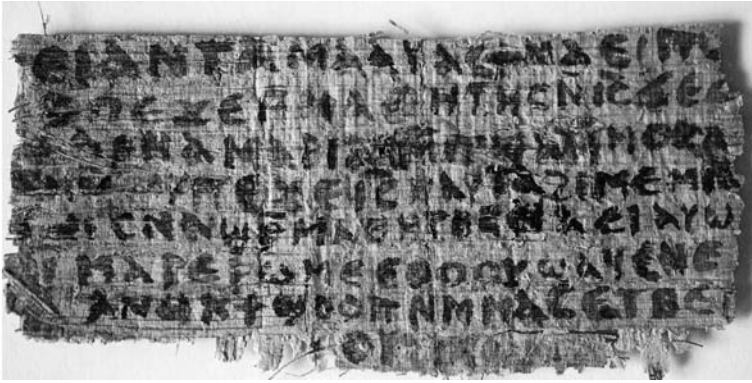 ⲉⲓ ⲁⲛ ⲧⲁⲙⲁⲁⲩ ⲁⲥϯ ⲛⲁⲉⲓ ⲡⲱ
ⲡⲉϫⲉ ⲙⲙⲁⲑⲏⲧⲏⲥ ⲛ̄ⲓ̄ⲥ̄ ϫⲉ ⲥ
ⲁⲣⲛⲁ ⲙⲁⲣⲓⲁⲙ
ⲡⲉϫⲉ ⲓ̄ⲥ̄ ⲛⲁⲩ ⲧⲁϩⲓⲙⲉ ⲙⲛ
ⲥⲛⲁϣⲣ̄ⲙⲁⲑⲏⲧⲏⲥ ⲛⲁⲉⲓ ⲁⲩⲱ
ⲓ ⲙⲁⲣⲉⲣⲱⲙⲉ ⲉⲑⲟⲟⲩ ϣⲁϥⲉ ⲛⲉ
ⲁⲛⲟⲕ ϯϣⲟⲟⲡ ⲛⲙⲙⲁⲥ ⲉⲧⲃⲉ